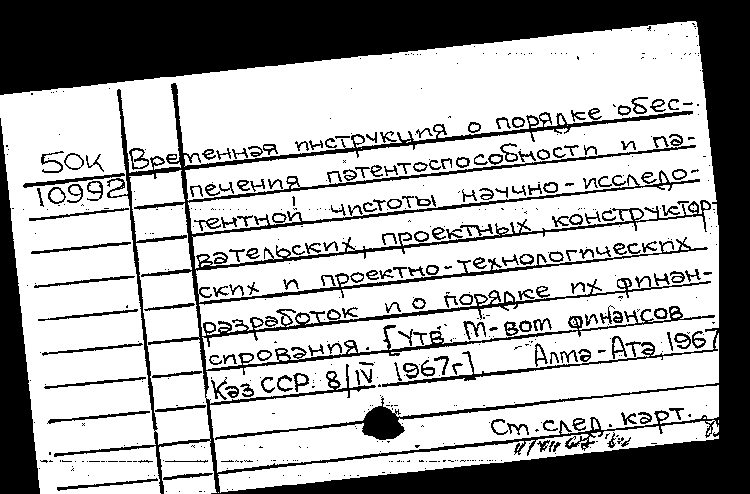 Временная инструкция о порядке обес-
50к
10992
печения патентоспособности и па-
тентной чистоты научно-исследо-
вательских, проектных, конструктор-
ских и проектно-технологических
разработок и о порядке их финан-
сирования. [Утв. М-вом финансов
Каз ССР. 8/IV 1967г.]. Алма-Ата, 1967
Ст. след. карт.